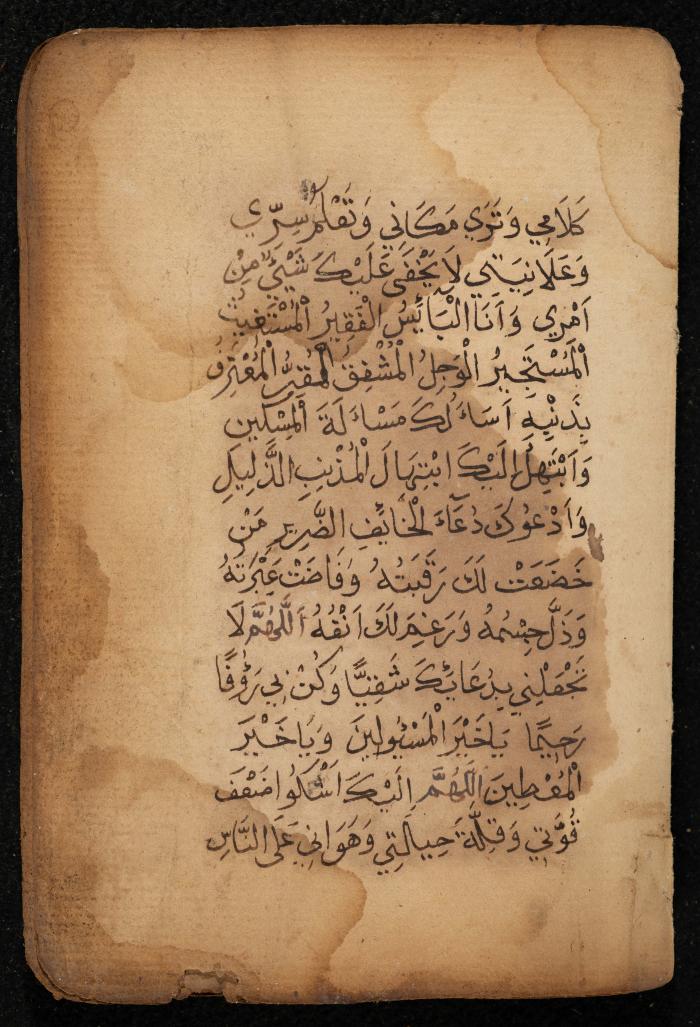 كَلَامِي وَتَرَي مَكَانِي وَتَعْلَمُ سِرِّي
وَعَلَانِيَتِي لَا يَخْفَى عَلَيْكَ شَيْئٌ مِنْ
اَمْرِي وَاَنَا الْبَآئِسُ الْفَقِيرُ الْمُسْتَغِيثُ
الْمُسْتَجِيرُ الْوَجِلُ الْمُشْفِقُ الْمُقِرُّ الْمُعْتَرِفُ
بِذَنْبِهِ اَسَاءلُكَ مَسَاءلَةَ الْمِسْكِينِ
وَاَبْتَهِلُ اِلَيْكَ ابْتِهَالَ الْمُذْنِبِ الذَّلِيلِ
وَاَدْعُوكَ دُعَآءَ الْخَائِفِ الضَّرِيرِ مَنْ
خَضَعَتْ لَكَ رَقَبَتُهُ وَفَاضَتْ عَبْرَتُهُ
وَذَلَّ جِسْمُهُ وَرَغِمَ لَكَ اَنْفُهُ اَللّٰهُمَّ لَا
تَجْعَلْنِي بِدُعَائِكَ شَقِيًّا وَكُنْ بِي رَؤُفًا
رَحِيمًا يَاخَيْرَ الْمَسْئُولِينَ وَيَاخَيْرَ
الْمُعْطِينَ اَللّٰهُمَّ اِلَيْكَ اَشْكُوا ضَعْفَ
قُوَّتِي وَقِلَّةَ حِيلَتِي وَهَوَانِي عَلَى النَّاسِ